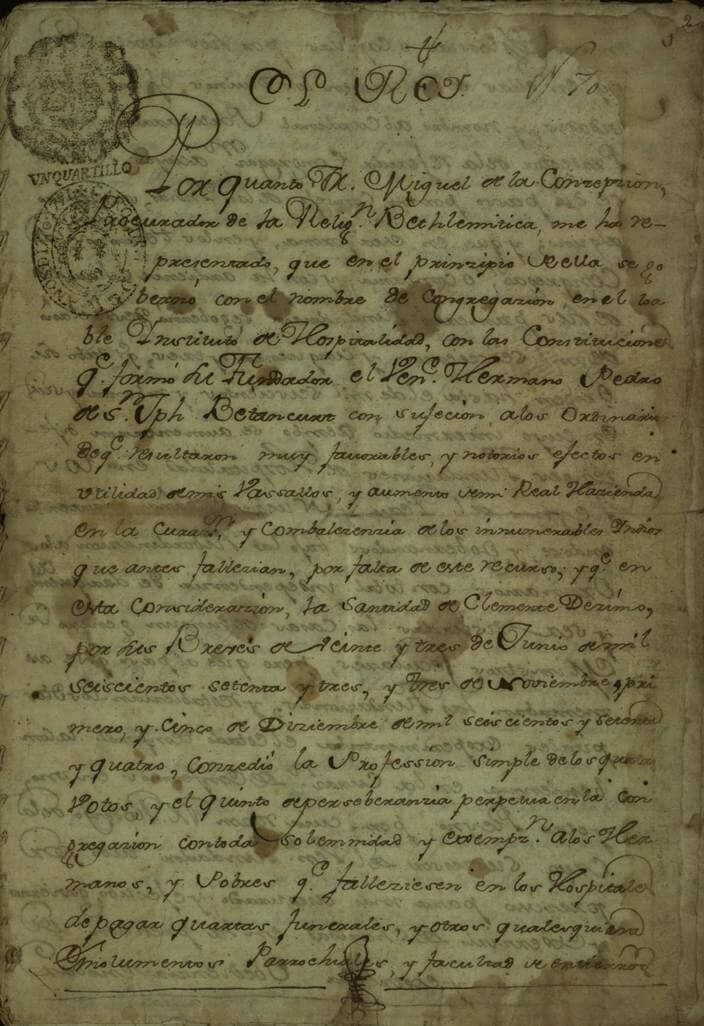 2
El Rey.
N. 70
VN QUARTILLO
Por quanto Fr. Miguel de la Conzepcion,
Procurador de la Relign. Bethlemitica, me ha re-
presentado, que en el principio de ella se go
bernó con el nombre de Congregazion en el loa
ble Instituto de Hospitalidad, con las Constituciones
q.e formó su Fundador el Ven.e Hermano Pedro
de Sn. Jph Betancurt con sujecion a los Ordinarios
de q.e resultaron muy favorables, y notorios efectos en
utilidad de mis Vassallos, y aumento de mi Real Hazienda
en la Curan., y Combalezenzia de los innumerables Indios
que antes fallezian, por falta de este recurso, y q.e en
esta Considerazion, la Santidad de Clemente Dezimo,
por sus Breves de Veinte y tres de Junio de mil
seiscientos setenta y tres, y tres de Noviembre, pri
mero, y Cinco de Diziembre de mil seiscientos y setenta
y quatro, Conzedió la Profession simple de los quatro
Votos, y el quinto de perseberanzia perpetua en la con
gregazion con toda solemnidad y exempzn. a los Her
manos, y Pobres q.e falleziesen en los Hospitales
de pagar quartas funerales, y otros qualesquiera
Emolumentos Parrochiales, y facultad de enterrar